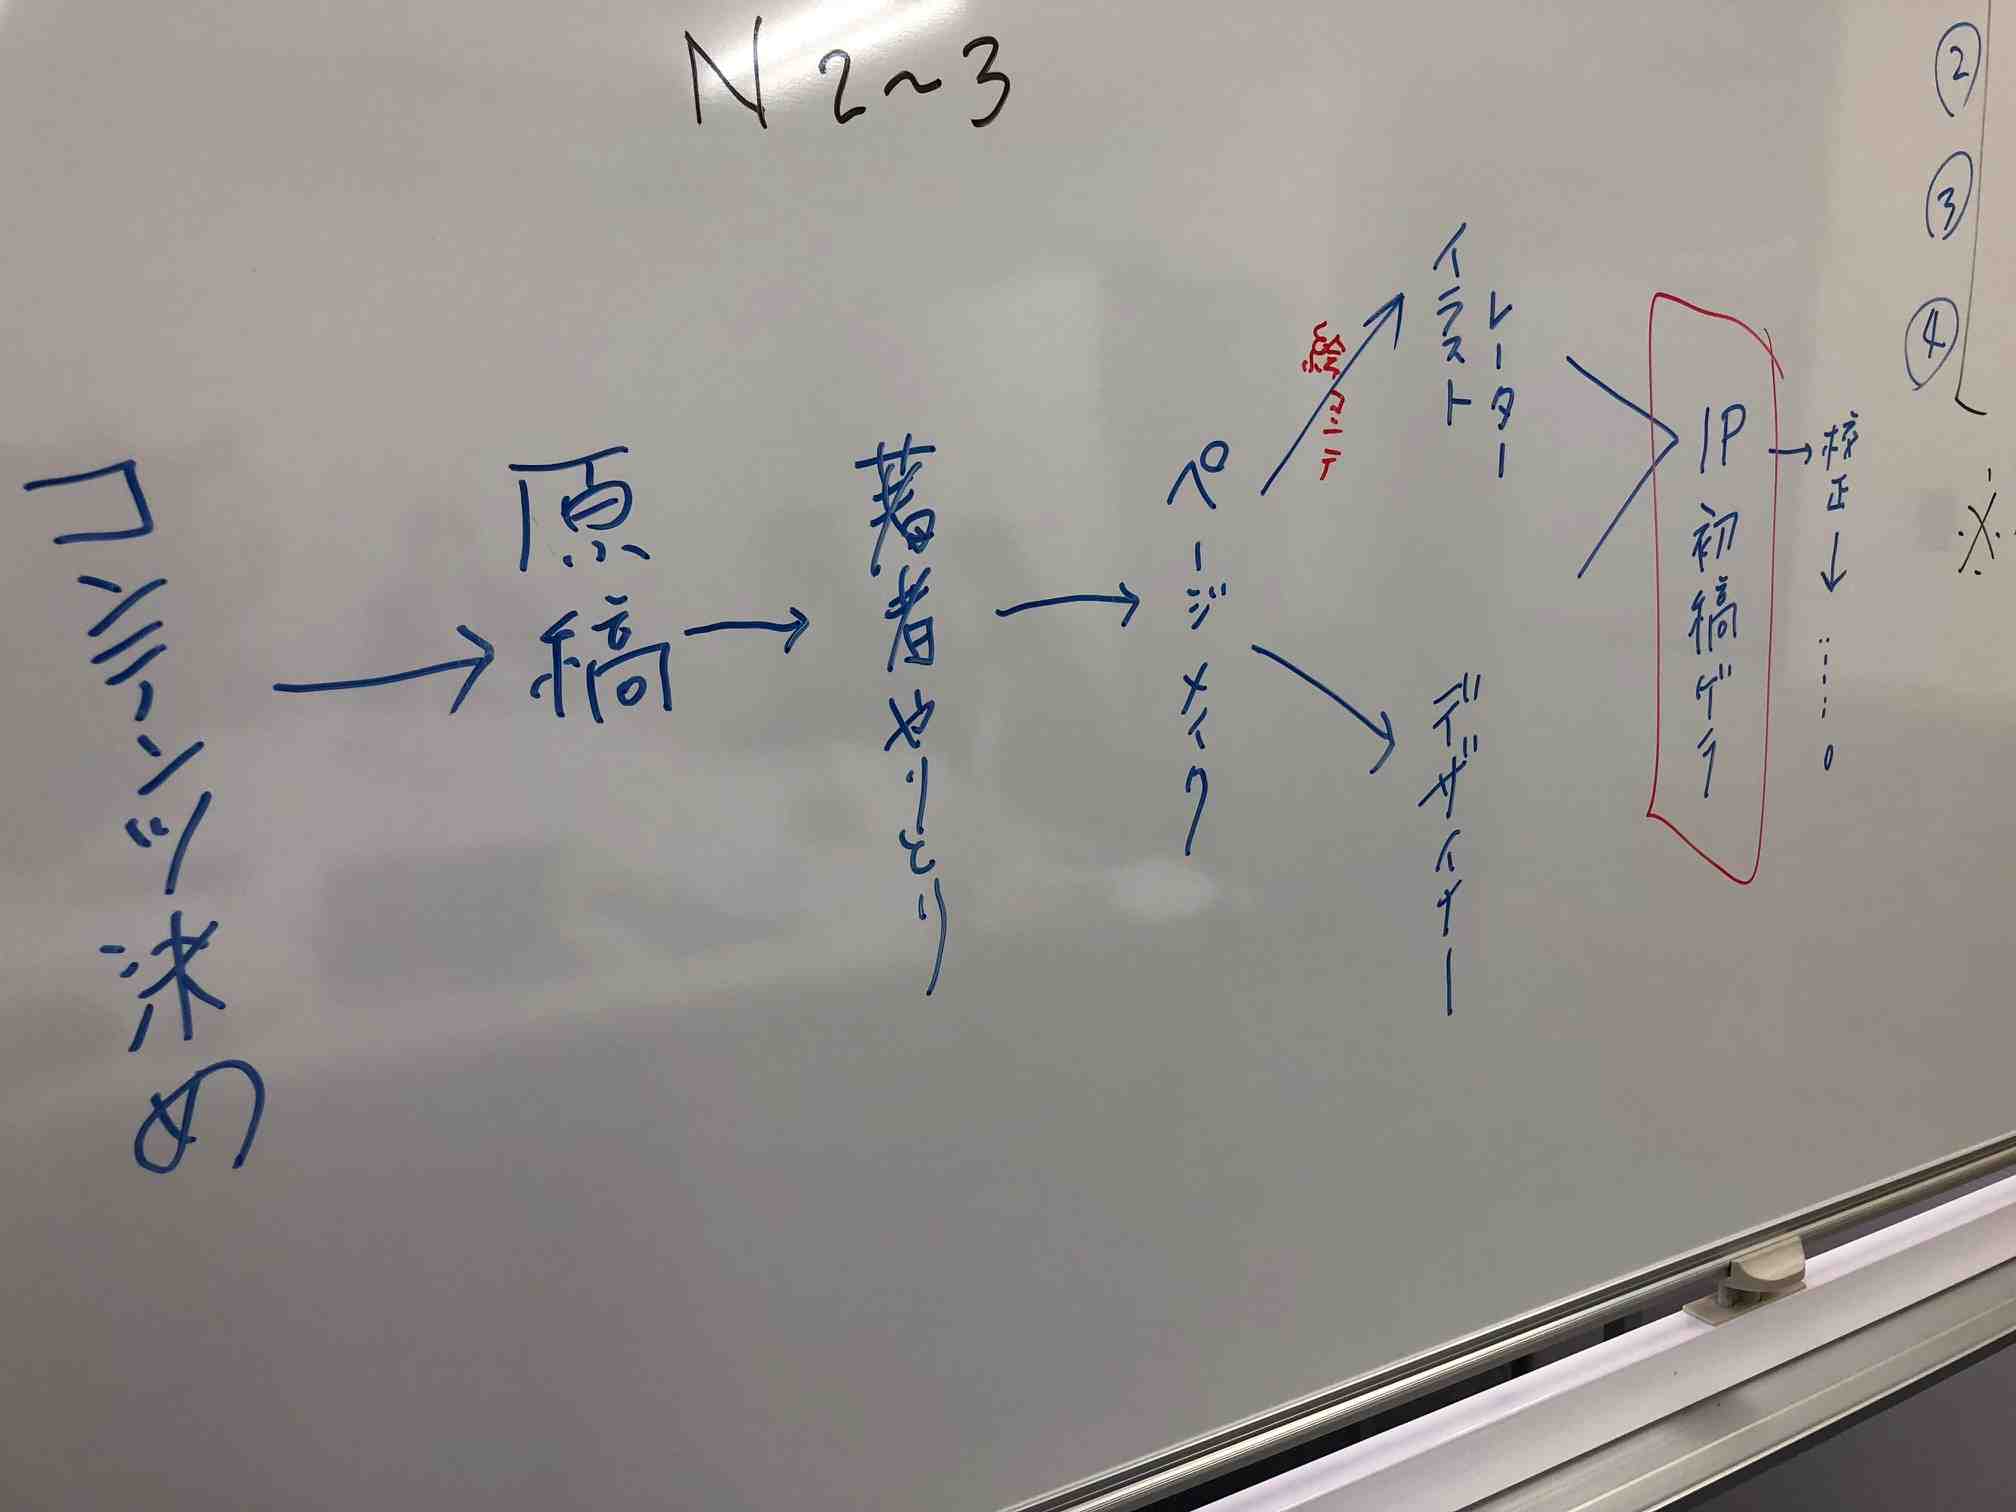 N2～3
コンテンツ決め
→
原稿
→
著者やりとり
→
ページメイク
絵コンテ
イラスト
レーター
デザイナー
1P初稿ゲラ
→
校正
↓
②
③
④
※